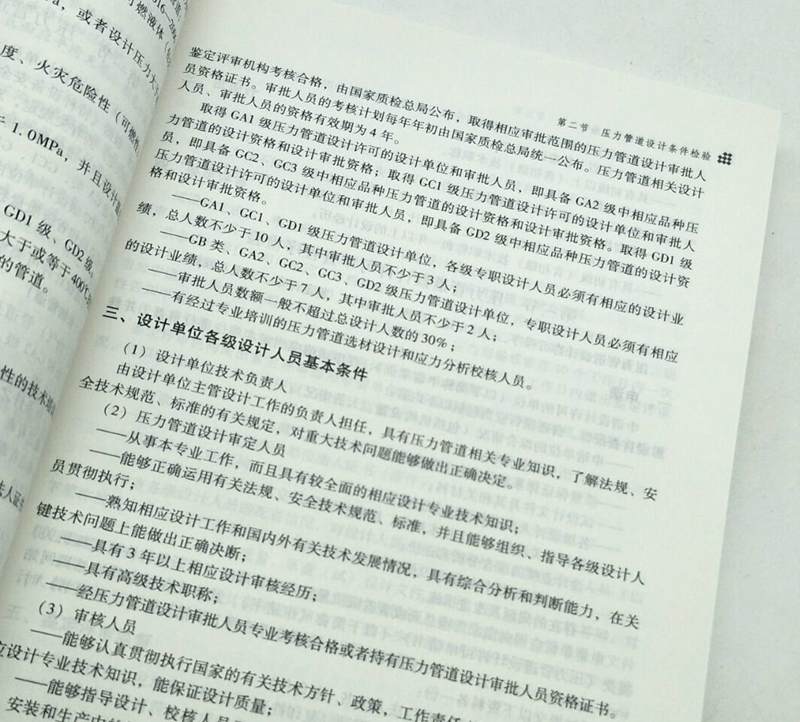 16—20
可燃液体（
a，或者设计压力大于
度、火灾危险性（可燃性
于 1.0MPa，并且设计
GD1 级、GD2级
大于或等于400℃
的管道。
性的技术
第二节 压力管道设计条件检验
鉴定评审机构考核合格，由国家质检总局公布，取得相应审批范围的压力管道设计审批人
员资格证书。审批人员的考核计划每年年初由国家质检总局统一公布。压力管道相关设计
人员、审批人员的资格有效期为 4 年。
取得 GA1 级压力管道设计许可的设计单位和审批人员，即具备 GA2 级中相应品种压
力管道的设计资格和设计审批资格；取得 GC1 级压力管道设计许可的设计单位和审批人
员，即具备 GC2、GC3 级中相应品种压力管道的设计资格和设计审批资格。取得 GD1 级
压力管道设计许可的设计单位和审批人员，即具备 GD2 级中相应品种压力管道的设计资
格和设计审批资格。
——GA1、GC1、GD1 级压力管道设计单位，各级专职设计人员必须有相应的设计业
绩，总人数不少于 10 人，其中审批人员不少于 3 人；
——GB 类、GA2、GC2、GC3、GD2 级压力管道设计单位，专职设计人员必须有相应
的设计业绩，总人数不少于 7 人，其中审批人员不少于 2 人；
——审批人员数额一般不超过总设计人数的 30%；
——有经过专业培训的压力管道选材设计和应力分析校核人员。
三、设计单位各级设计人员基本条件
（1）设计单位技术负责人
由设计单位主管设计工作的负责人担任，具有压力管道相关专业知识，了解法规、安
全技术规范、标准的有关规定，对重大技术问题能够做出正确决定。
（2）压力管道设计审定人员
——从事本专业工作，而且具有较全面的相应设计专业技术知识；
——能够正确运用有关法规、安全技术规范、标准，并且能够组织、指导各级设计人
员贯彻执行；
——熟知相应设计工作和国内外有关技术发展情况，具有综合分析和判断能力，在关
键技术问题上能做出正确决断；
——具有 3 年以上相应设计审核经历；
——具有高级技术职称；
——经压力管道设计审批人员专业考核合格或者持有压力管道设计审批人员资格证书。
（3）审核人员
——能够认真贯彻执行国家的有关技术方针、政策，工作责任
应设计专业技术知识，能保证设计质量；
——能够指导设计、校核人员
安装和生产中的